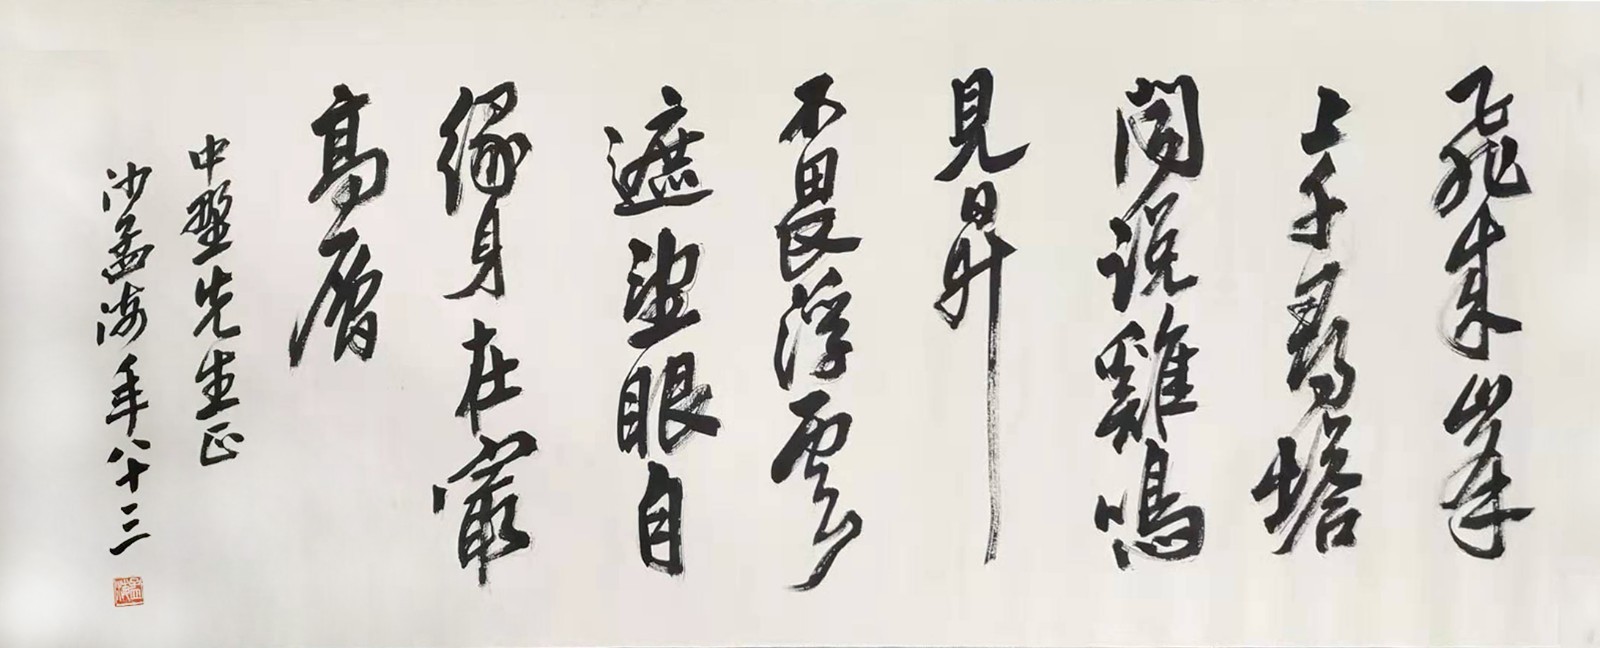 飛來峯
上千尋塔
聞說雞鳴
見日昇
不畏浮雲
遮望眼自
緣身在最
高層
中墅先生正
沙孟海年八十三